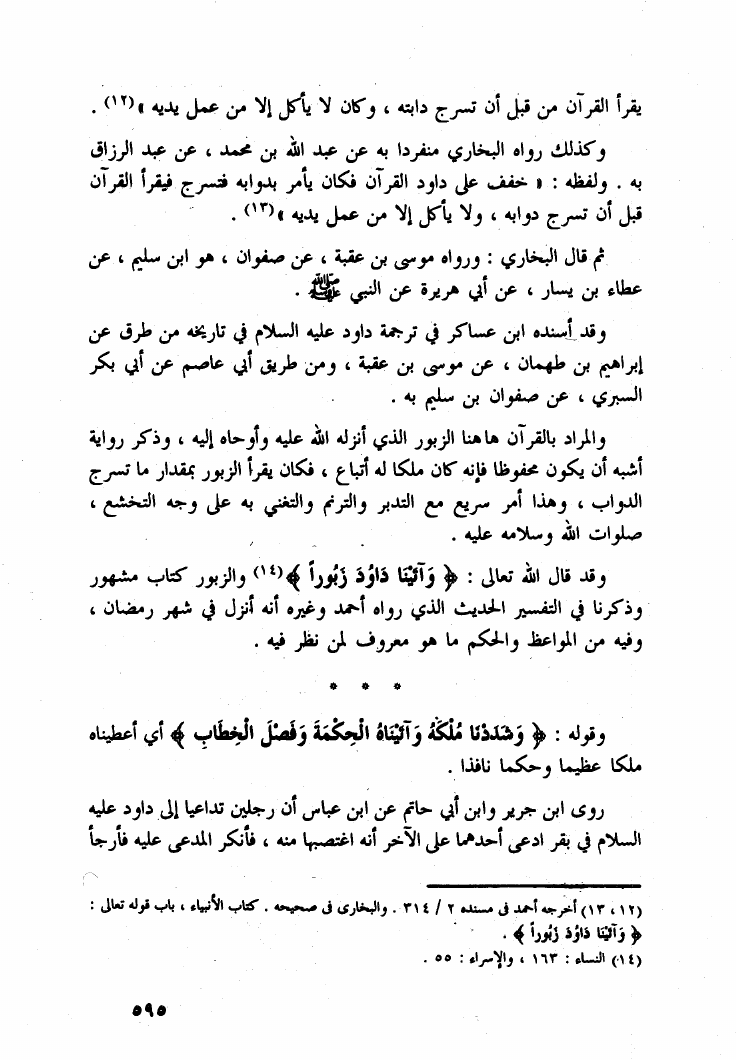 يقرأ القرآن من قبل أن تسرج دابته ، وكان لا يأكل إلا من عمل يديه »(١٢) .
وكذلك رواه البخاري منفردا به عن عبد الله بن محمد ، عن عبد الرزاق
به . ولفظه : « خفف على داود القرآن فكان يأمر بدوابه فتسرج فيقرأ القرآن
قبل أن تسرج دوابه ، ولا يأكل إلا من عمل يديه »(١٣) .
ثم قال البخاري : ورواه موسى بن عقبة ، عن صفوان ، هو ابن سليم ، عن
عطاء بن يسار ، عن أبي هريرة عن النبي ﷺ .
وقد أسنده ابن عساكر في ترجمة داود عليه السلام في تاريخه من طرق عن
إبراهيم بن طهمان ، عن موسى بن عقبة ، ومن طريق أبي عاصم عن أبي بكر
السبري ، عن صفوان بن سليم به .
والمراد بالقرآن هاهنا الزبور الذي أنزله الله عليه وأوحاه إليه ، وذكر رواية
أشبه أن يكون محفوظا فإنه كان ملكا له أتباع ، فكان يقرأ الزبور بمقدار ما تسرج
الدواب ، وهذا أمر سريع مع التدبر والترنم والتغني به على وجه التخشع ،
صلوات الله وسلامه عليه .
وقد قال الله تعالى : ﴿ وَآتَيْنَا دَاوُدَ زَبُوراً ﴾(١٤) والزبور كتاب مشهور
وذكرنا في التفسير الحديث الذي رواه أحمد وغيره أنه أنزل في شهر رمضان ،
وفيه من المواعظ والحكم ما هو معروف لمن نظر فيه .
* * *
وقوله : ﴿ وَشَدَدْنَا مُلْكَهُ وَآتَيْنَاهُ الْحِكْمَةَ وَفَصْلَ الْخِطَابِ ﴾ أي أعطيناه
ملكا عظيما وحكما نافذا .
روى ابن جرير وابن أبي حاتم عن ابن عباس أن رجلين تداعيا إلى داود عليه
السلام في بقر ادعى أحدهما على الآخر أنه اغتصبها منه ، فأنكر المدعى عليه فأرجأ
(١٢ ، ١٣) أخرجه أحمد فى مسنده ٢ / ٣١٤ . والبخارى فى صحيحه . كتاب الأنبياء ، باب قوله تعالى :
﴿ وَآتَيْنَا دَاوُدَ زَبُوراً ﴾ .
(١٤) النساء : ١٦٣ ، والإسراء : ٥٥ .
٥٩٥